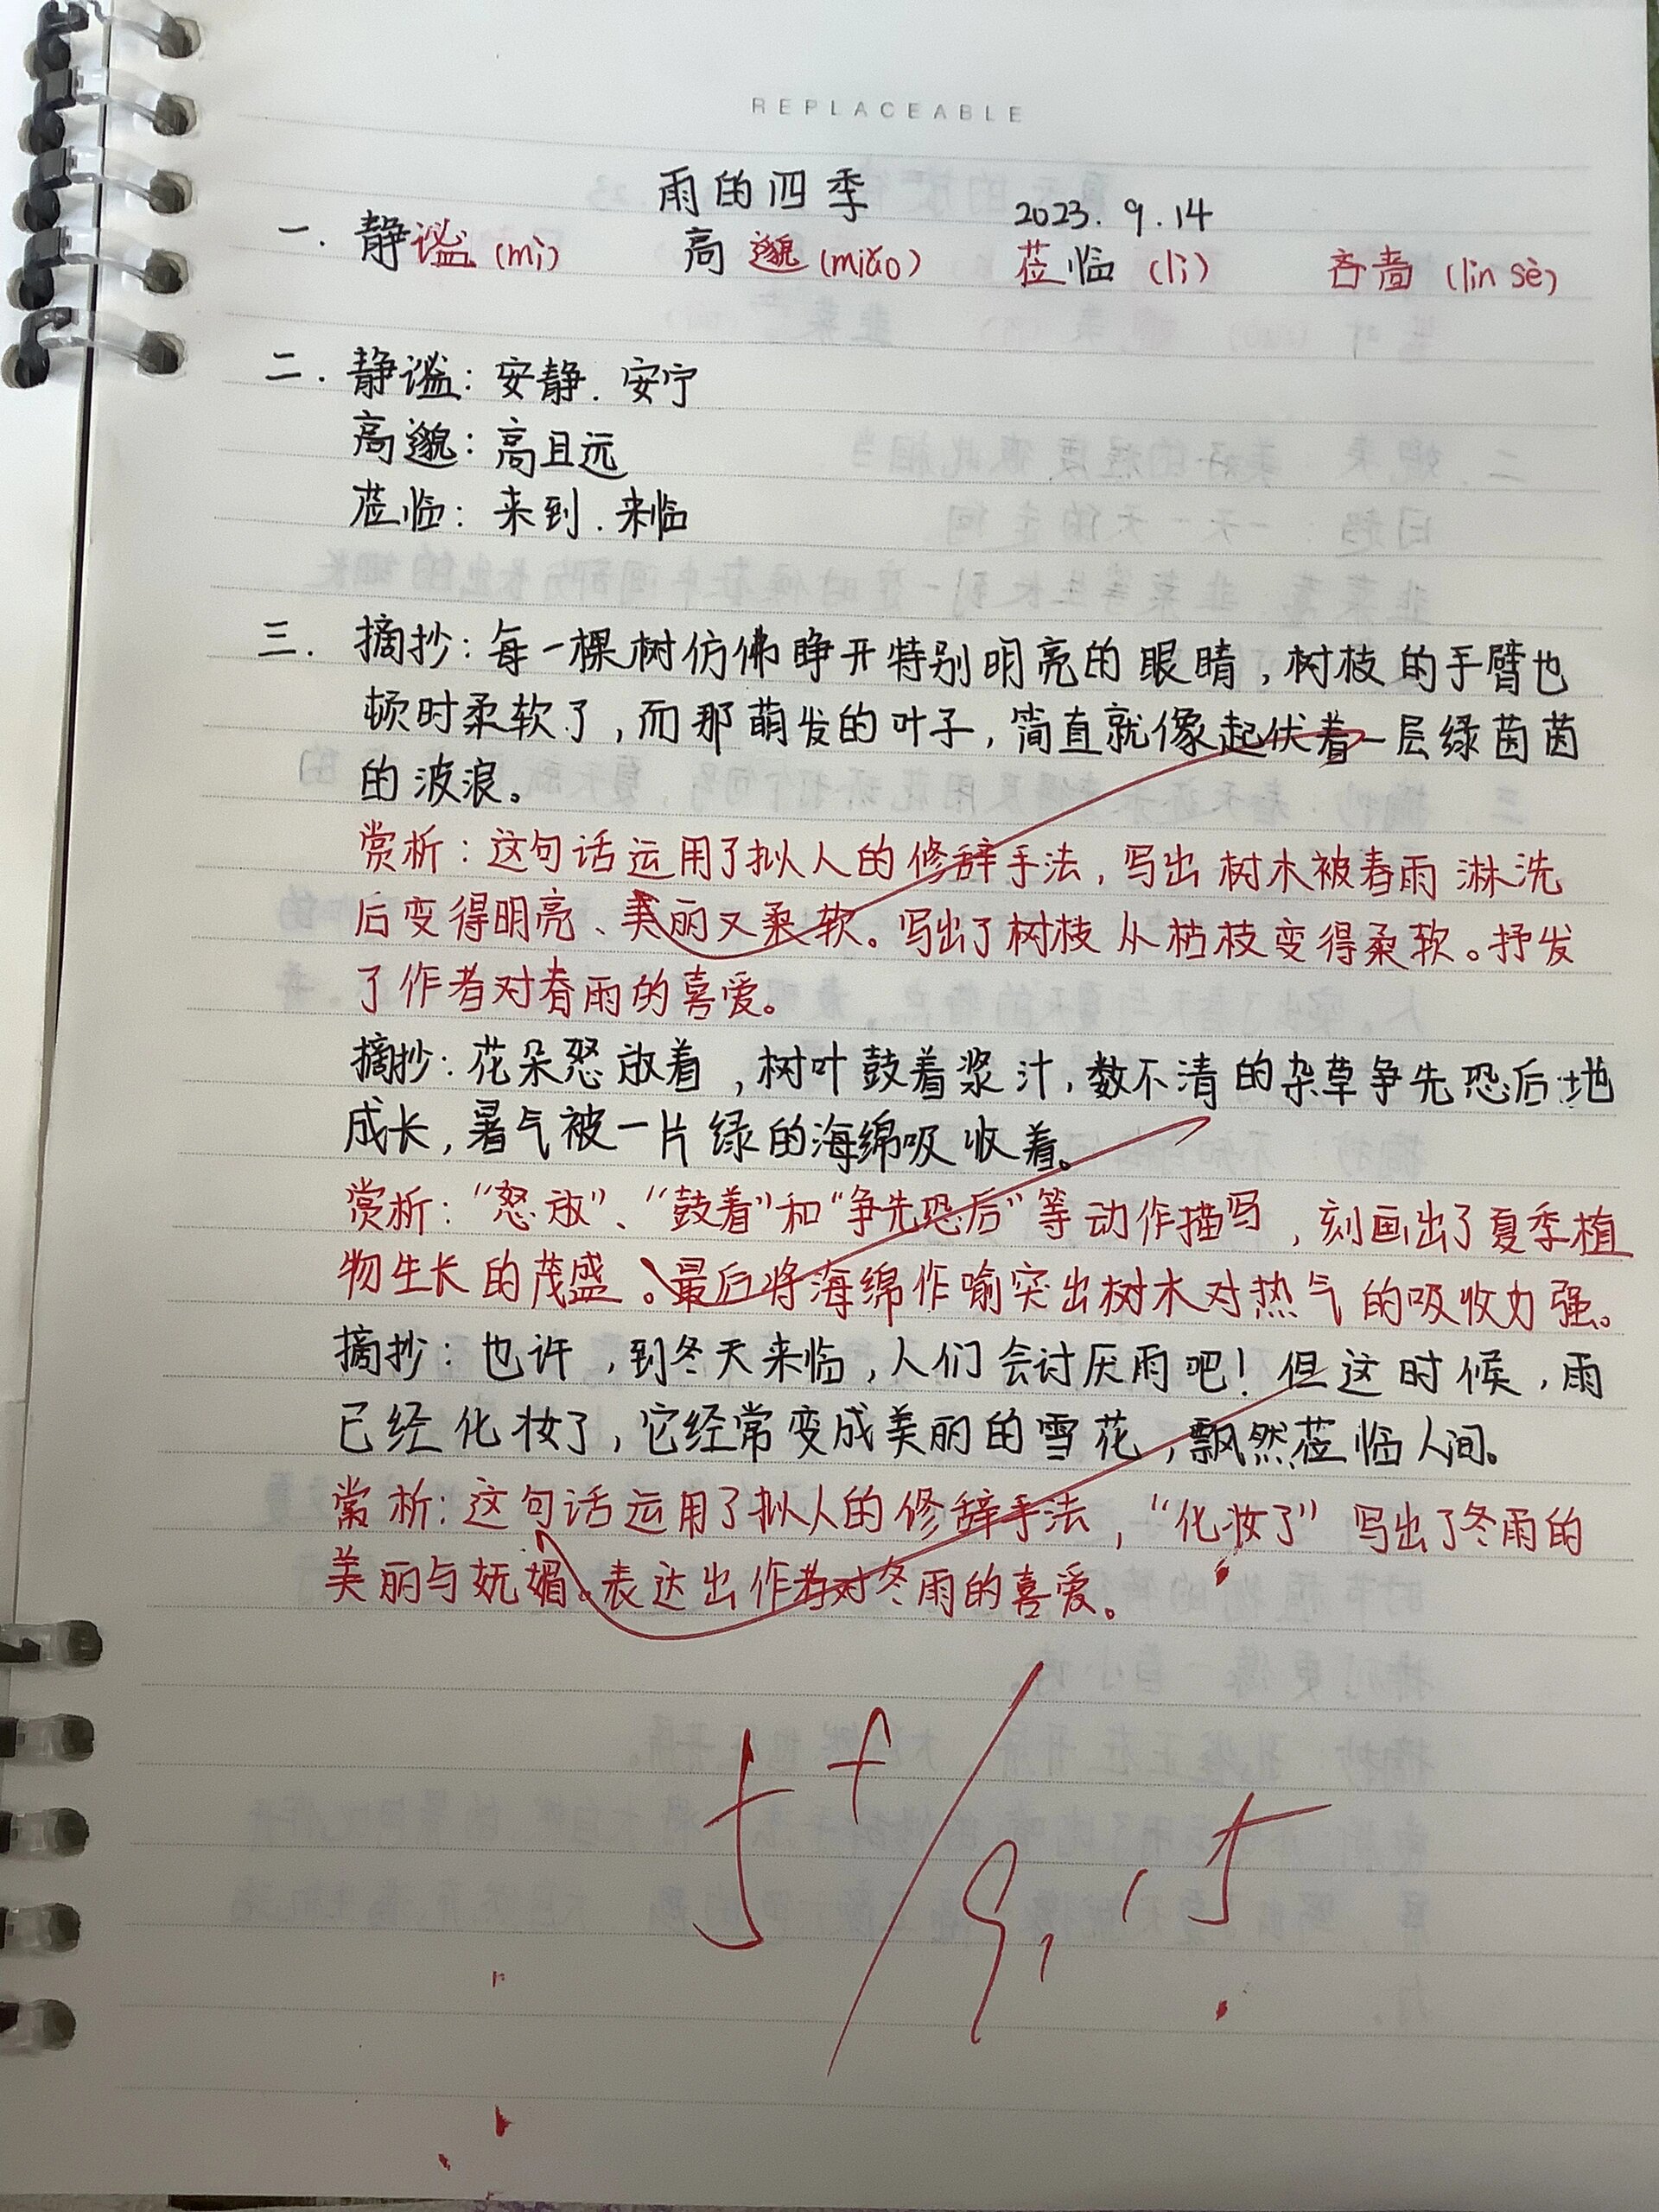 REPLACEABLE
雨的四季
2023.9.14
一. 静谧(mì) 高邈(miǎo) 莅临(lì) 吝啬(lìn sè)
二. 静谧：安静.安宁
高邈：高且远
莅临：来到.来临
三. 摘抄：每一棵树仿佛睁开特别明亮的眼睛，树枝的手臂也
顿时柔软了，而那萌发的叶子，简直就像起伏着一层绿茵茵
的波浪。
赏析：这句话运用了拟人的修辞手法，写出树木被春雨淋洗
后变得明亮、美丽又柔软。写出了树枝从枯枝变得柔软。抒发
了作者对春雨的喜爱。
摘抄：花朵怒放着，树叶鼓着浆汁，数不清的杂草争先恐后地
成长，暑气被一片绿的海绵吸收着。
赏析：“怒放”、“鼓着”和“争先恐后”等动作描写，刻画出了夏季植
物生长的茂盛。最后将海绵作喻突出树木对热气的吸收力强。
摘抄：也许，到冬天来临，人们会讨厌雨吧！但这时候，雨
已经化妆了，它经常变成美丽的雪花，飘然莅临人间。
赏析：这句话运用了拟人的修辞手法，“化妆了”写出了冬雨的
美丽与妩媚。表达出作者对冬雨的喜爱。
5+/9.15